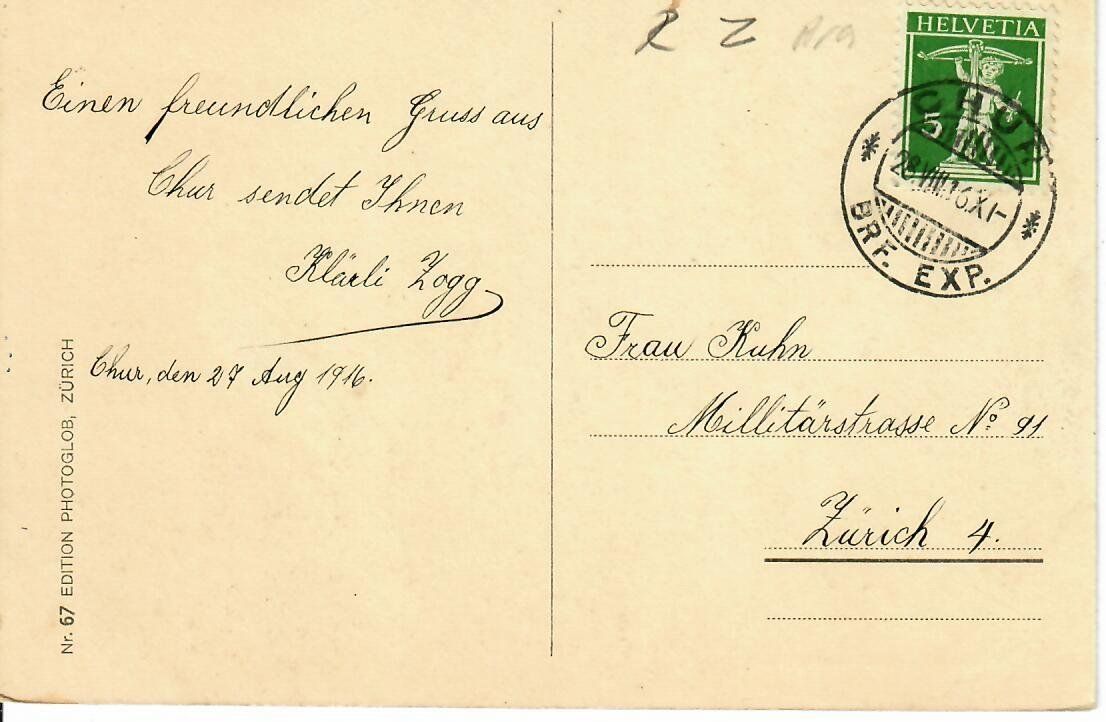 Einen freundlichen Gruss aus
Chur sendet Ihnen
Klärli Zogg
Chur, den 27 Aug 1916.
Nr. 67 EDITION PHOTOGLOB, ZÜRICH
R Z
HELVETIA
5
CHUR
28.VIII.16.XI-
BRF. EXP.
Frau Kuhn
Millitärstrasse No. 91
Zürich 4.